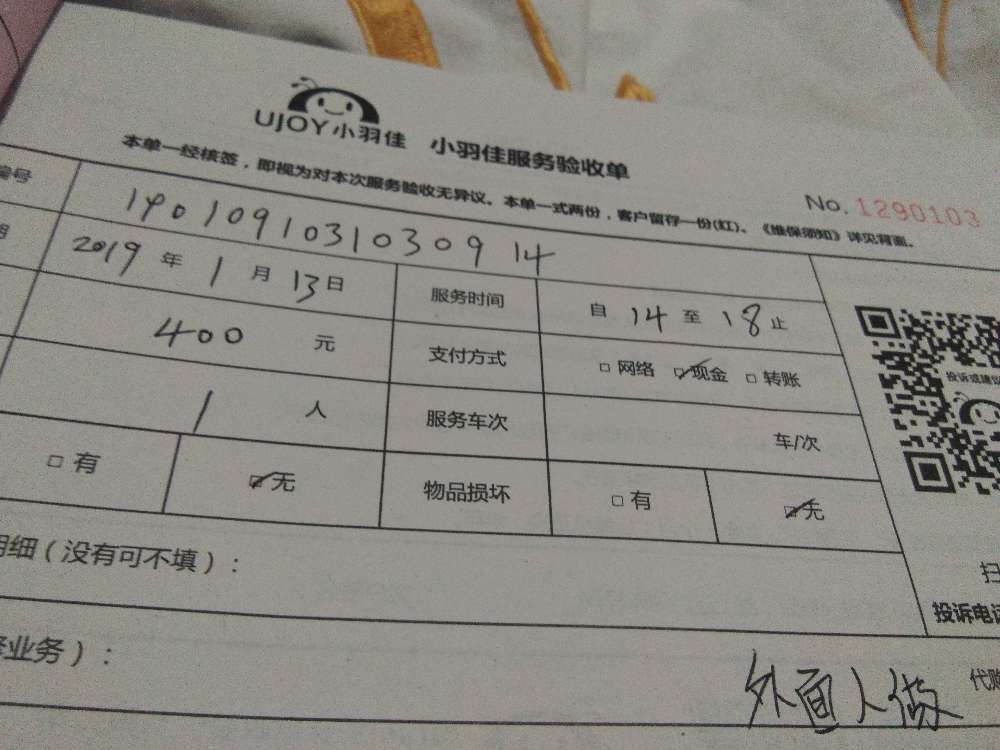 UJOY小羽佳 小羽佳服务验收单
本单一经核签，即视为对本次服务验收无异议。本单一式两份，客户留存一份(红)、《维保须知》详见背面。
No. 1290103
编号 19010910310309 14
2019 年 1 月 13 日 服务时间 自 14 至 18 止
400 元 支付方式 □ 网络 ☑ 现金 □ 转账
投诉或建议
1 人 服务车次 车/次
□ 有 ☑ 无 物品损坏 □ 有 ☑ 无
明细（没有可不填）：
扫
投诉电话
业务）：
代购
外面人做